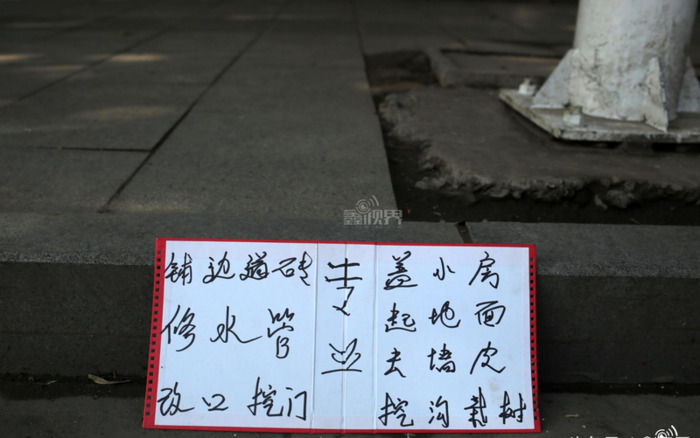 铺边道砖
修水管
改口挖门
专业
盖小房
起地面
去墙皮
挖沟栽树
鑫视界